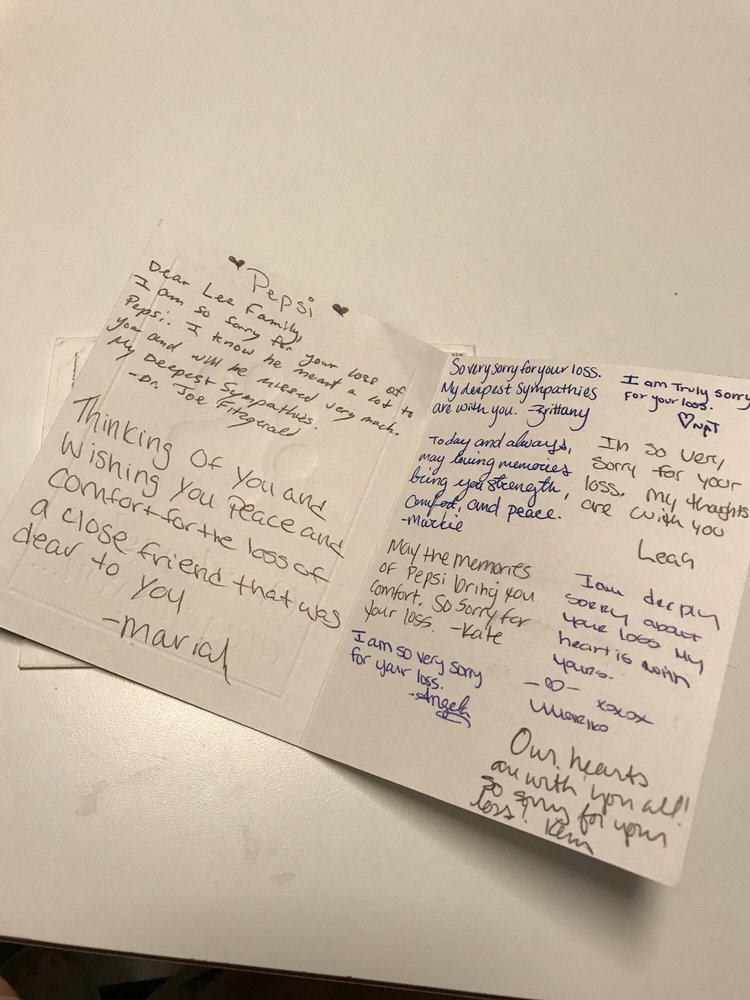 ♥ Pepsi ♥
Dear Lee Family,
I am so sorry for your loss of
Pepsi. I know he meant a lot to
you and will be missed very much.
My Deepest Sympathies.
-Dr. Joe Fitzgerald
Thinking of you and
Wishing you Peace and
comfort for the loss of
a close friend that was
dear to you
-Mariah
So very sorry for your loss.
My deepest sympathies
are with you. -Brittany
I am Truly sorry
for your loss.
♡NAT
Today and always,
may loving memories
bring you strength,
comfort, and peace.
-Markie
Im so very
sorry for your
loss. My thoughts
are with you
Leah
May the memories
of Pepsi bring you
comfort. So Sorry for
your loss. -Kate
I am deeply
sorry about
your loss my
heart is with
yours.
xoxox
I am so very sorry
for your loss.
-Angela
Our hearts
are with you all!
So sorry for your
loss!